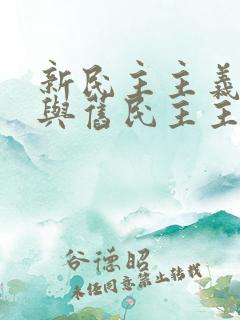 新民主主義
與舊民主主
谷德昭
未經同意禁止轉載